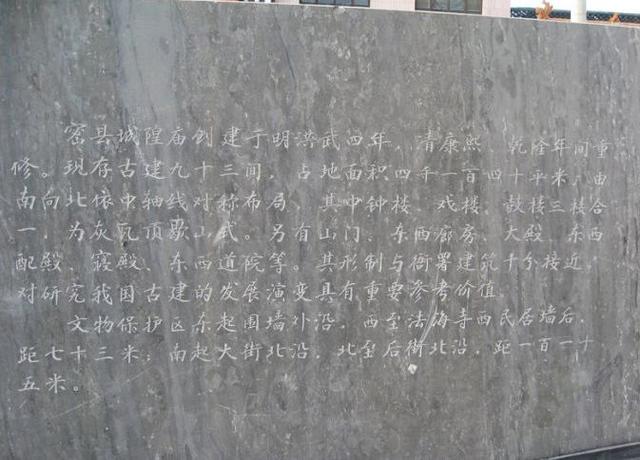 密县城隍庙创建于明洪武四年，清康熙 乾隆年间重
修。现存古建九十三间，占地面积四千一百四十平米，由
南向北依中轴线对称布局，其中钟楼、戏楼、鼓楼三楼合
一，为灰瓦顶歇山式。另有山门、东西廊房、大殿、东西
配殿、寝殿、东西道院等。其形制与衙署建筑十分接近，
对研究我国古建的发展演变具有重要参考价值。
文物保护区东起围墙外沿，西至法海寺西民居墙后，
距七十三米；南起大街北沿，北至后街北沿，距一百一十
五米。